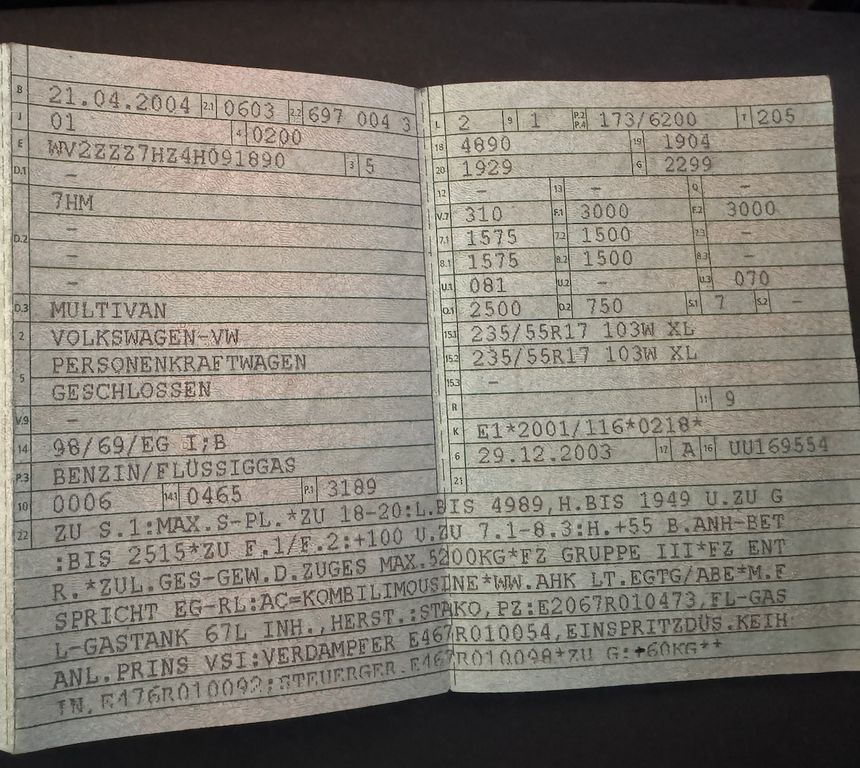 B 21.04.2004 2.1 0603 2.2 697 004 3
J 01 4 0200
E WV2ZZZ7HZ4H091890 3 5
D.1 –
D.2 7HM
–
–
–
D.3 MULTIVAN
2 VOLKSWAGEN-VW
5 PERSONENKRAFTWAGEN
GESCHLOSSEN
V.9 –
14 98/69/EG I;B
P.3 BENZIN/FLÜSSIGGAS
10 0006 14.1 0465 P.1 3189
L 2 9 1 P.2 P.4 173/6200 T 205
18 4890 19 1904
20 1929 G 2299
12 – 13 – Q –
V.7 310 F.1 3000 F.2 3000
7.1 1575 7.2 1500 7.3 –
8.1 1575 8.2 1500 8.3 –
U.1 081 U.2 – U.3 070
O.1 2500 O.2 750 S.1 7 S.2
15.1 235/55R17 103W XL
15.2 235/55R17 103W XL
15.3 –
R 11 9
K E1*2001/116*0218*
6 29.12.2003 17 A 16 UU169554
21
22 ZU S.1:MAX.S-PL.*ZU 18-20:L.BIS 4989,H.BIS 1949 U.ZU G
:BIS 2515*ZU F.1/F.2:+100 U.ZU 7.1-8.3:H.+55 B.ANH-BET
R.*ZUL.GES-GEW.D.ZUGES MAX.5200KG*FZ GRUPPE III*FZ ENT
SPRICHT EG-RL:AC=KOMBILIMOUSINE*WW.AHK LT.EGTG/ABE*M.F
L-GASTANK 67L INH.,HERST.:STAKO,PZ:E2067R010473,FL-GAS
ANL.PRINS VSI:VERDAMPFER E467R010054,EINSPRITZDÜS.KEIH
IN.E476R010092;STEUERGER.E467R010098*ZU G:+60KG**